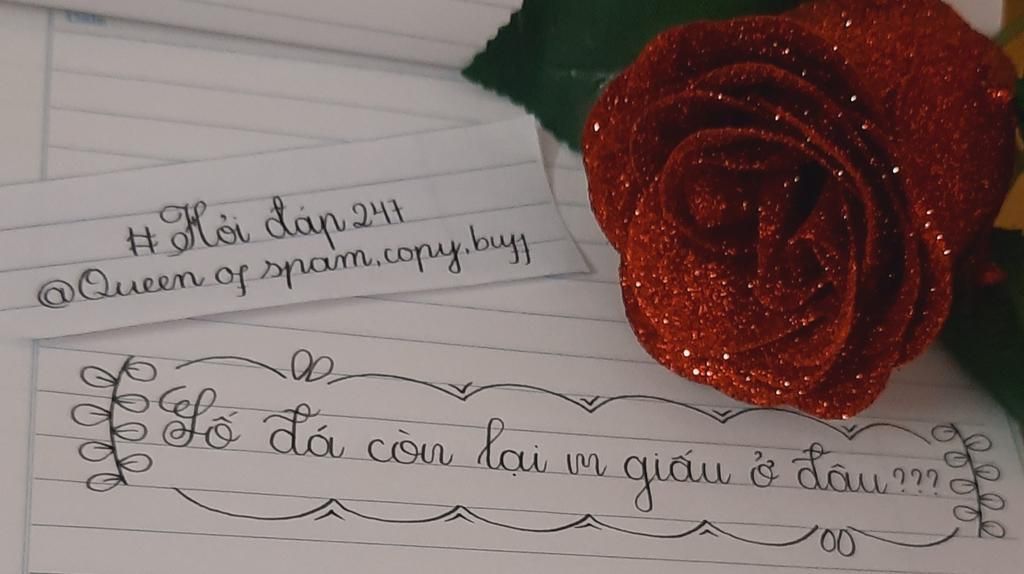 # Hỏi đáp 247
@Queen of spam.copy.buff
Số đá còn lại m giấu ở đâu???